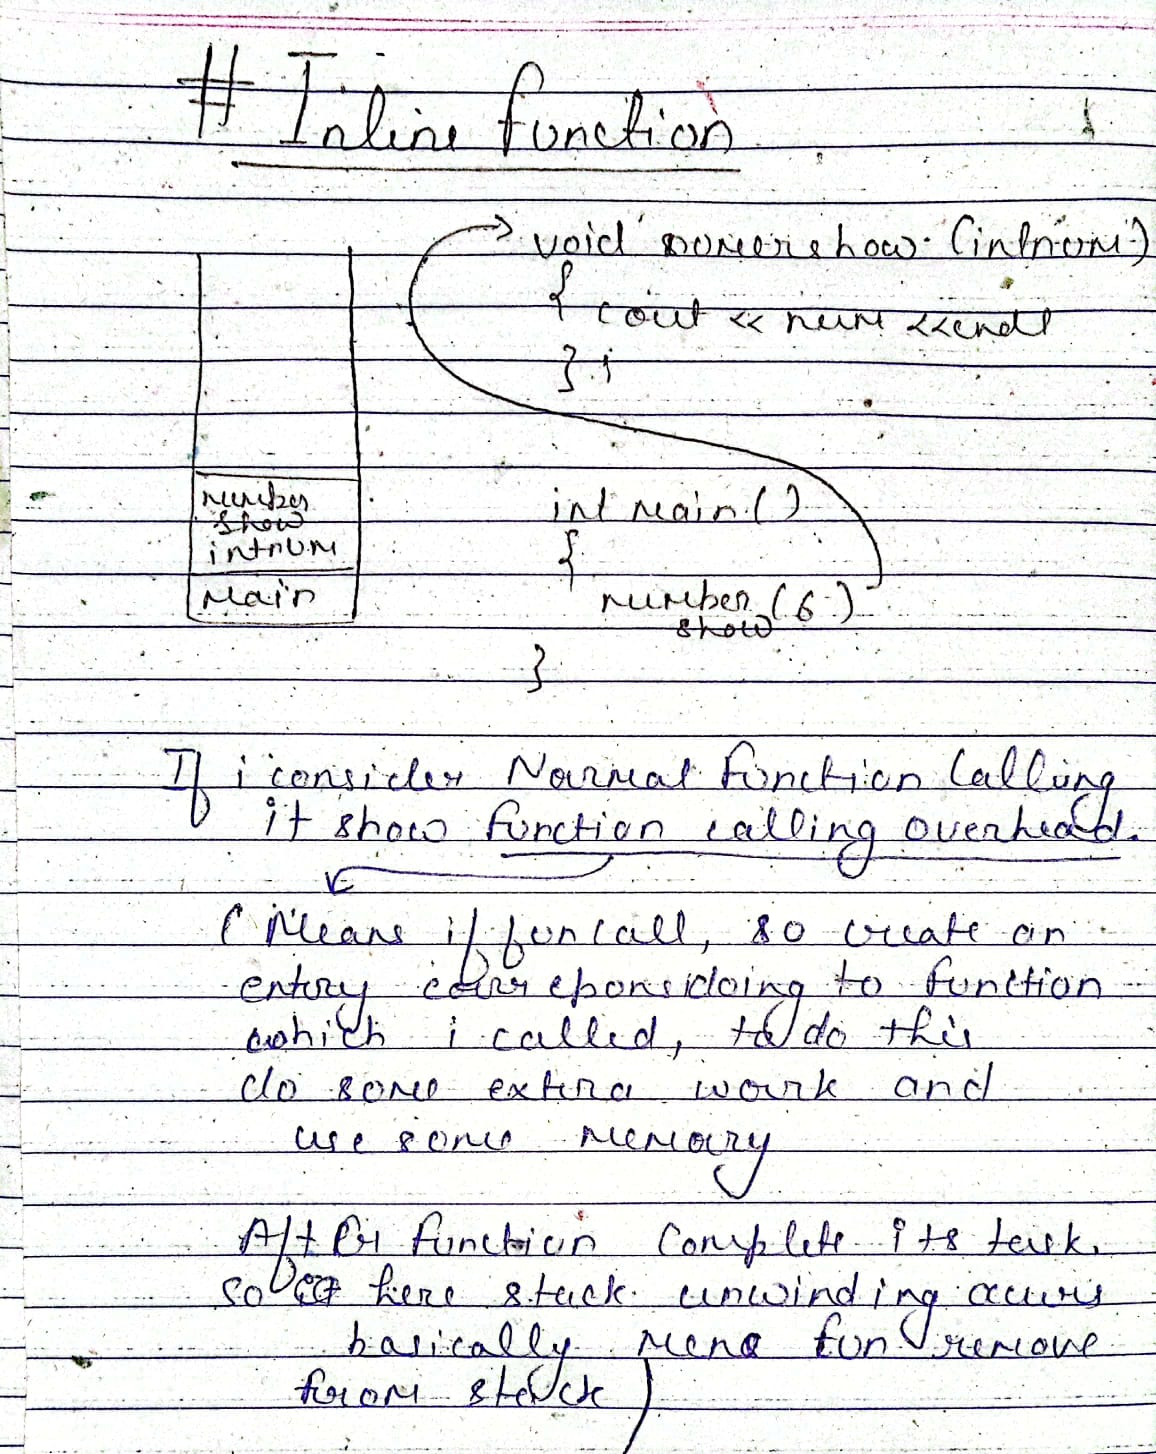 # Inline function
void numbershow (int num)
{
cout << num <<endl
};
number
show
int num
main
int main()
{
number (6)
show
}
If i consider Normal function Calling
it show function calling overhead.
( Means if fun call, so create an
entry to function
which i called, to do this
do some extra work and
use some memory
After function Complete its task,
so here stack unwinding occurs
basically fun remove
from stack )